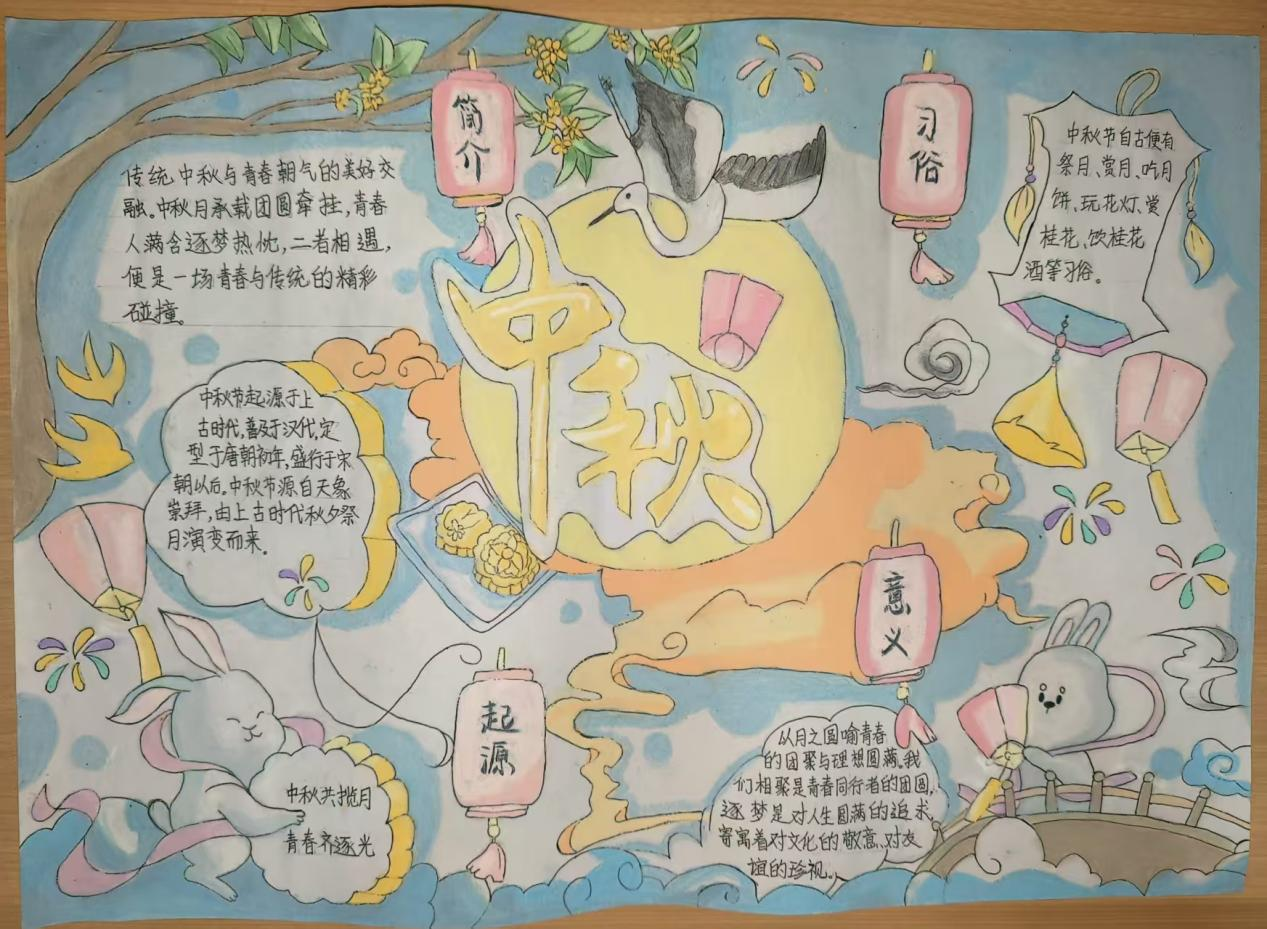 简介
传统中秋与青春朝气的美好交
融。中秋月承载团圆牵挂,青春
人满含逐梦热忱,二者相遇,
便是一场青春与传统的精彩
碰撞。
中秋
习俗
中秋节自古便有
祭月、赏月、吃月
饼、玩花灯、赏
桂花、饮桂花
酒等习俗。
中秋节起源于上
古时代,普及于汉代,定
型于唐朝初年,盛行于宋
朝以后。中秋节源自天象
崇拜,由上古时代秋夕祭
月演变而来。
起源
中秋共揽月
青春齐逐光
意义
从月之圆喻青春
的团聚与理想圆满。我
们相聚是青春同行者的团圆,
逐梦是对人生圆满的追求,
寄寓着对文化的敬意、对友
谊的珍视。